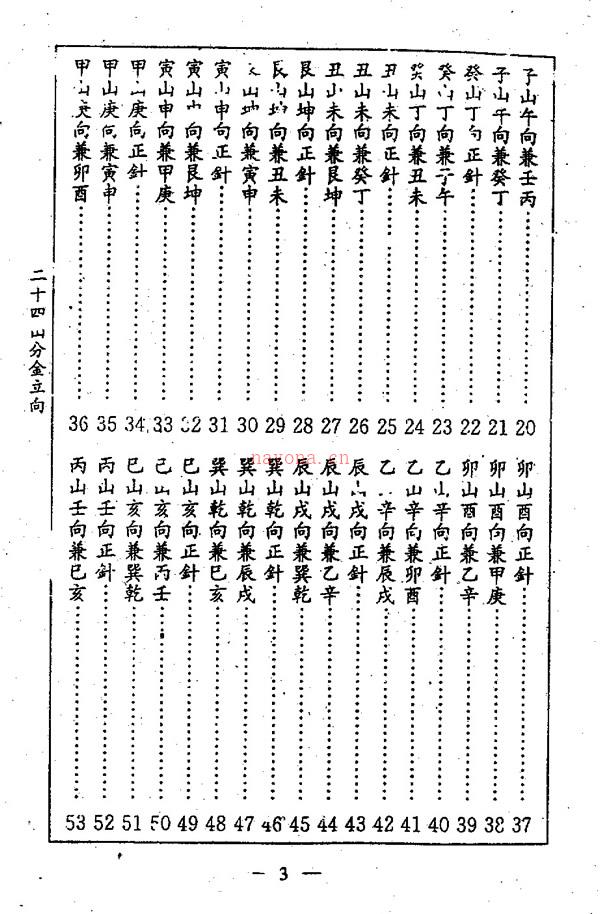 子山午向兼壬丙……20
子山午向兼癸丁……21
癸山丁向正針……22
癸山丁向兼子午……23
癸山丁向兼丑未……24
丑山未向正針……25
丑山未向兼癸丁……26
丑山未向兼艮坤……27
艮山坤向正針……28
艮山坤向兼丑未……29
山坤向兼寅申……30
寅山申向正針……31
寅山申向兼艮坤……32
寅山申向兼甲庚……33
甲山庚向正針……34
甲山庚向兼寅申……35
甲山庚向兼卯酉……36
卯山酉向正針……37
卯山酉向兼甲庚……38
卯山酉向兼乙辛……39
乙山辛向正針……40
乙山辛向兼卯酉……41
乙辛向兼辰戌……42
辰山戌向正針……43
辰山戌向兼乙辛……44
辰山戌向兼巽乾……45
巽山乾向正針……46
巽山乾向兼辰戌……47
巽山乾向兼巳亥……48
巳山亥向正針……49
巳山亥向兼丙壬……50
巳山亥向兼巽乾……51
丙山壬向正針……52
丙山壬向兼巳亥……53
二十四山分金立向
— 3 —
nayona.cn